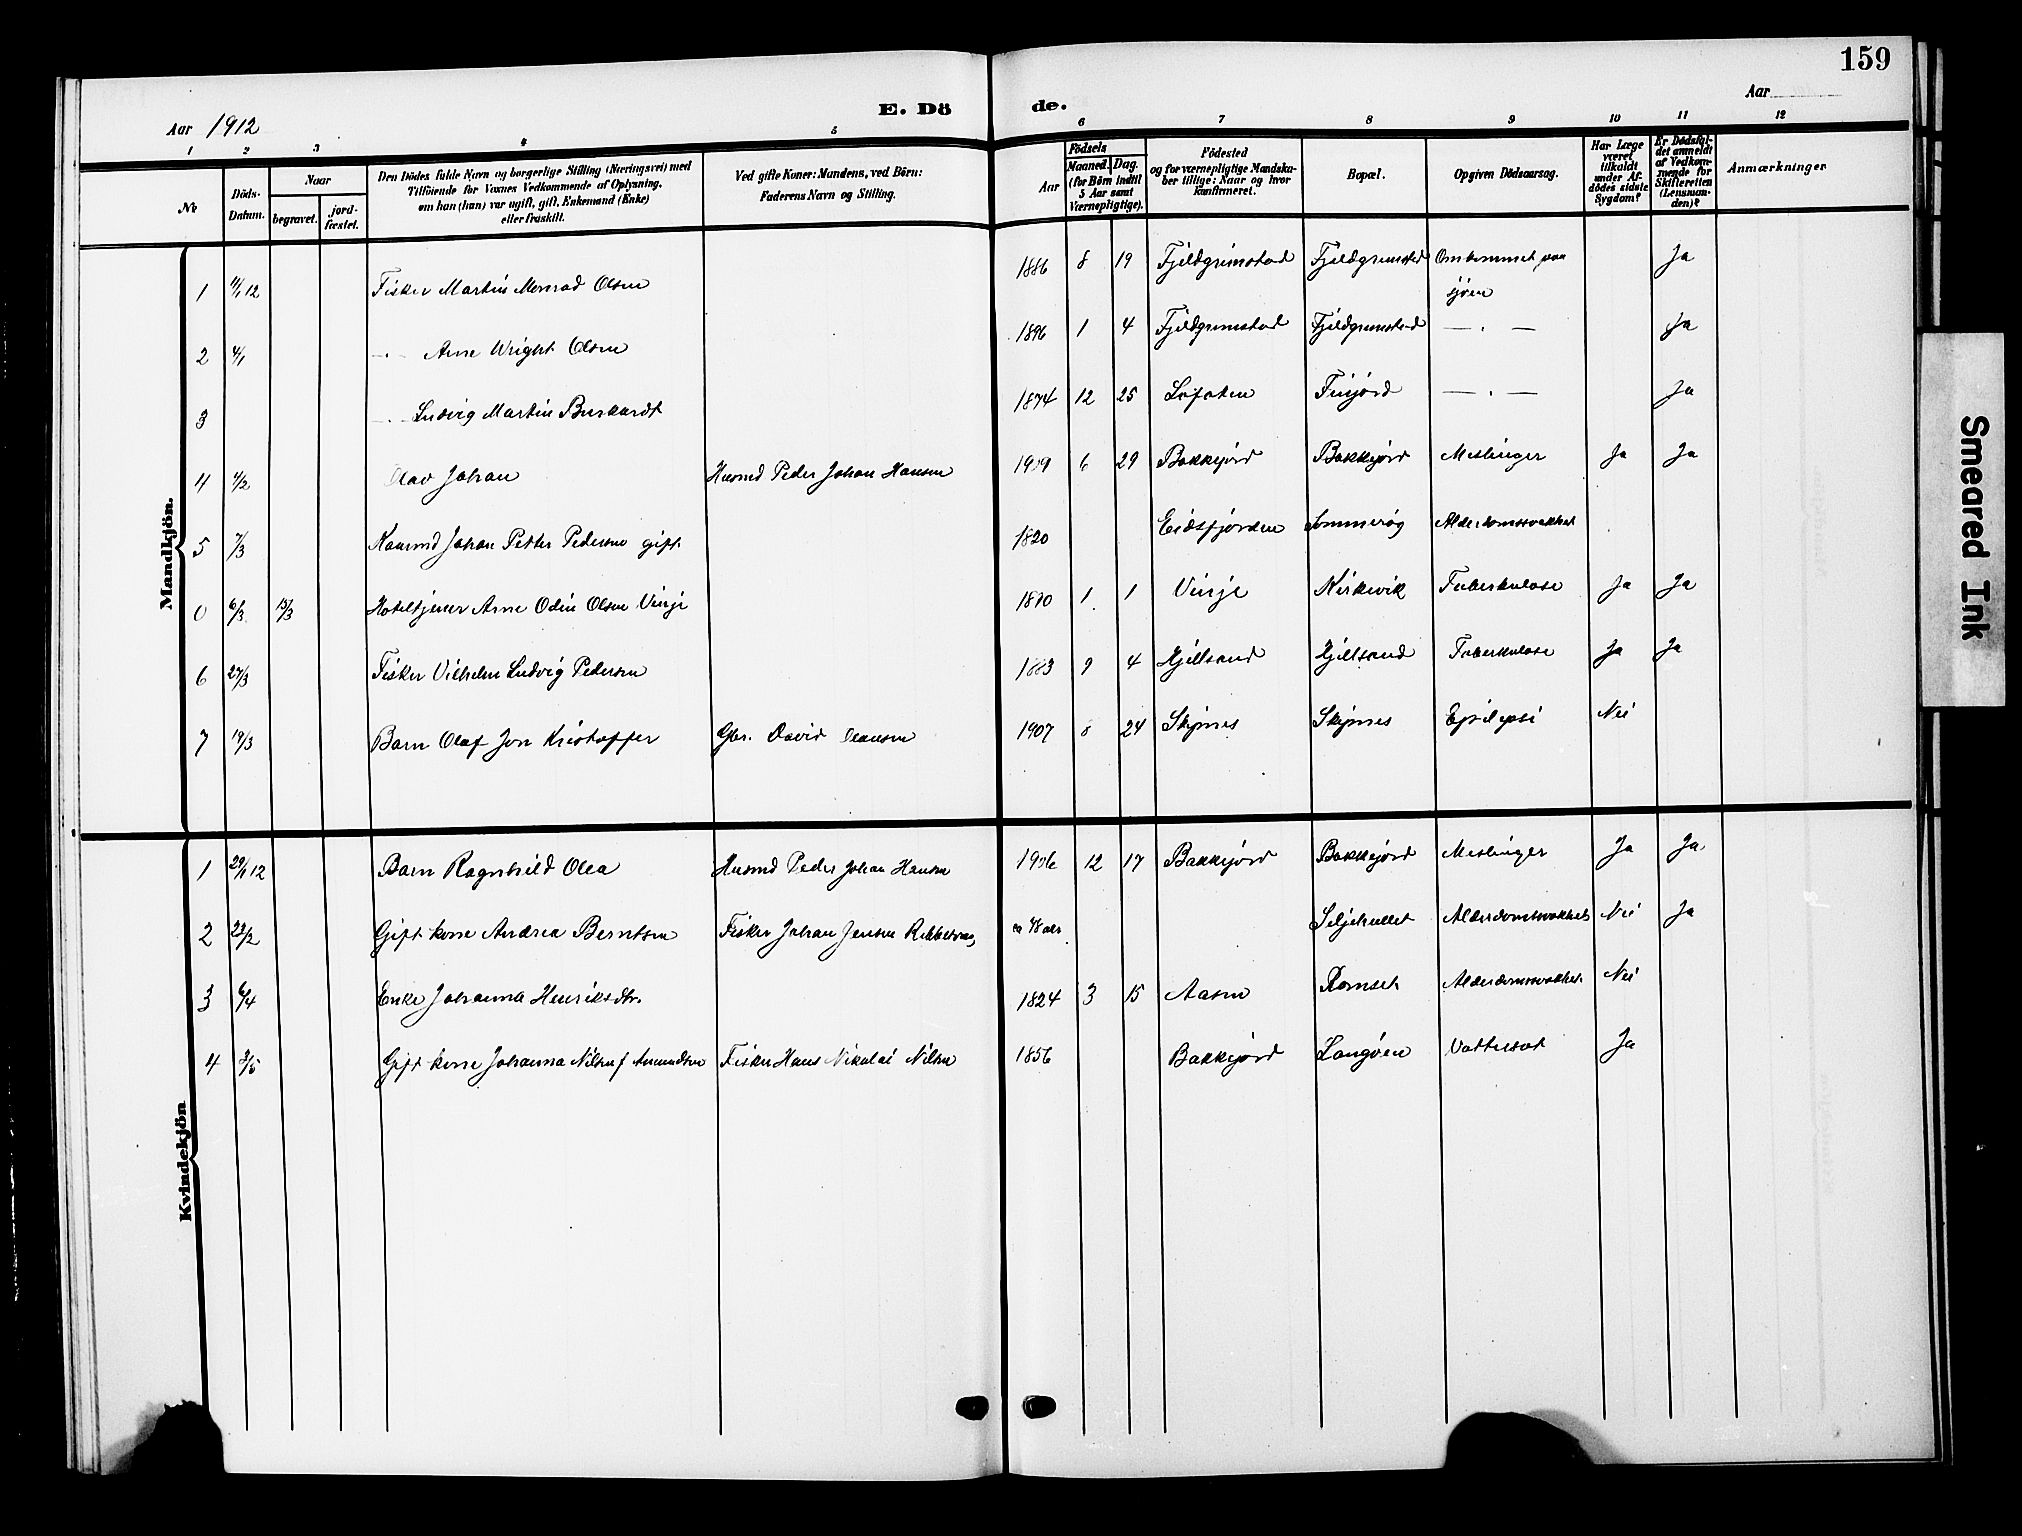 159
Aar 1912
E. Döde.
Aar
1 2 3 4 5 6 7 8 9 10 11 12
No
Döds-Datum.
Naar
begravet.
jordfæstet.
Den Dödes fulde Navn og borgerlige Stilling (Næringsvei) med
Tilföiende for Voxnes Vedkommende af Oplysning,
om han (hun) var ugift, gift, Enkemand (Enke)
eller fraskilt.
Ved gifte Koner: Mandens, ved Börn:
Faderens Navn og Stilling.
Aar
Födsels
Maaned. Dag.
(for Börn indtil
5 Aar samt
Værnepligtige).
Födested
og for værnepligtige Mandska-
ber tillige: Naar og hvor
konfirmeret.
Bopæl.
Opgiven Dödsaarsag.
Har Læge
været
tilkaldt
under Af-
dödes sidste
Sygdom?
Er Dödsfal-
det anmeldt
af Vedkom-
mende for
Skifteretten
(Lensman-
den)?
Anmærkninger
Mandkjön.
1 4/1 12 Fisker Martin Monrad Olsen 1886 8 19 Fjeldgrimstad Fjeldgrimstad Omkommet paa
sjøen Ja
2 4/1 —"— Arne Wright Olsen 1896 1 4 Fjeldgrimstad Fjeldgrimstad — " — Ja
3 —"— Ludvig Martin Burkardt 1874 12 25 Lofoten Finjord — " — Ja
4 4/2 Olav Johan Husmd Peder Johan Hansen 1909 6 29 Bakkejord Bakkejord Meslinger Ja Ja
5 7/3 Kaarmd Johan Petter Pedersen gift. 1820 Eidsfjorden Sommerøg Alderdomssvakhet
0 6/3 15/3 Hoteltjener Arne Odin Olsen Vinje 1890 1 1 Vinje Kirkevik Tuberkulose Ja Ja
6 27/3 Fisker Vilhelm Ludvig Pedersen 1883 9 4 Kjillsand Kjillsand Tuberkulose Ja Ja
7 19/3 Barn Olaf Jon Kristoffer Gbr. David Hansen 1907 8 24 Skjernes Skjernes Epilepsi Nei
Kvindekjön
1 29/1 12 Barn Ragnhild Olea Husmd Peder Johan Hansen 1906 12 17 Bakkejord Bakkejord Meslinger Ja Ja
2 23/2 Gift kone Andrea Berntsen Fisker Johan Jensen Seljehullet Alderdomssvakhet Nei Ja
3 6/4 Enke Johanna Henriksdtr. 1824 3 15 Aasen Ramset Alderdomssvakhet Nei
4 3/5 Gift kone Johanna Nilsen f Amundsen Fisker Hans Nikolai Nilsen 1856 Bakkejord Langøen Vattersot Ja
Smeared Ink